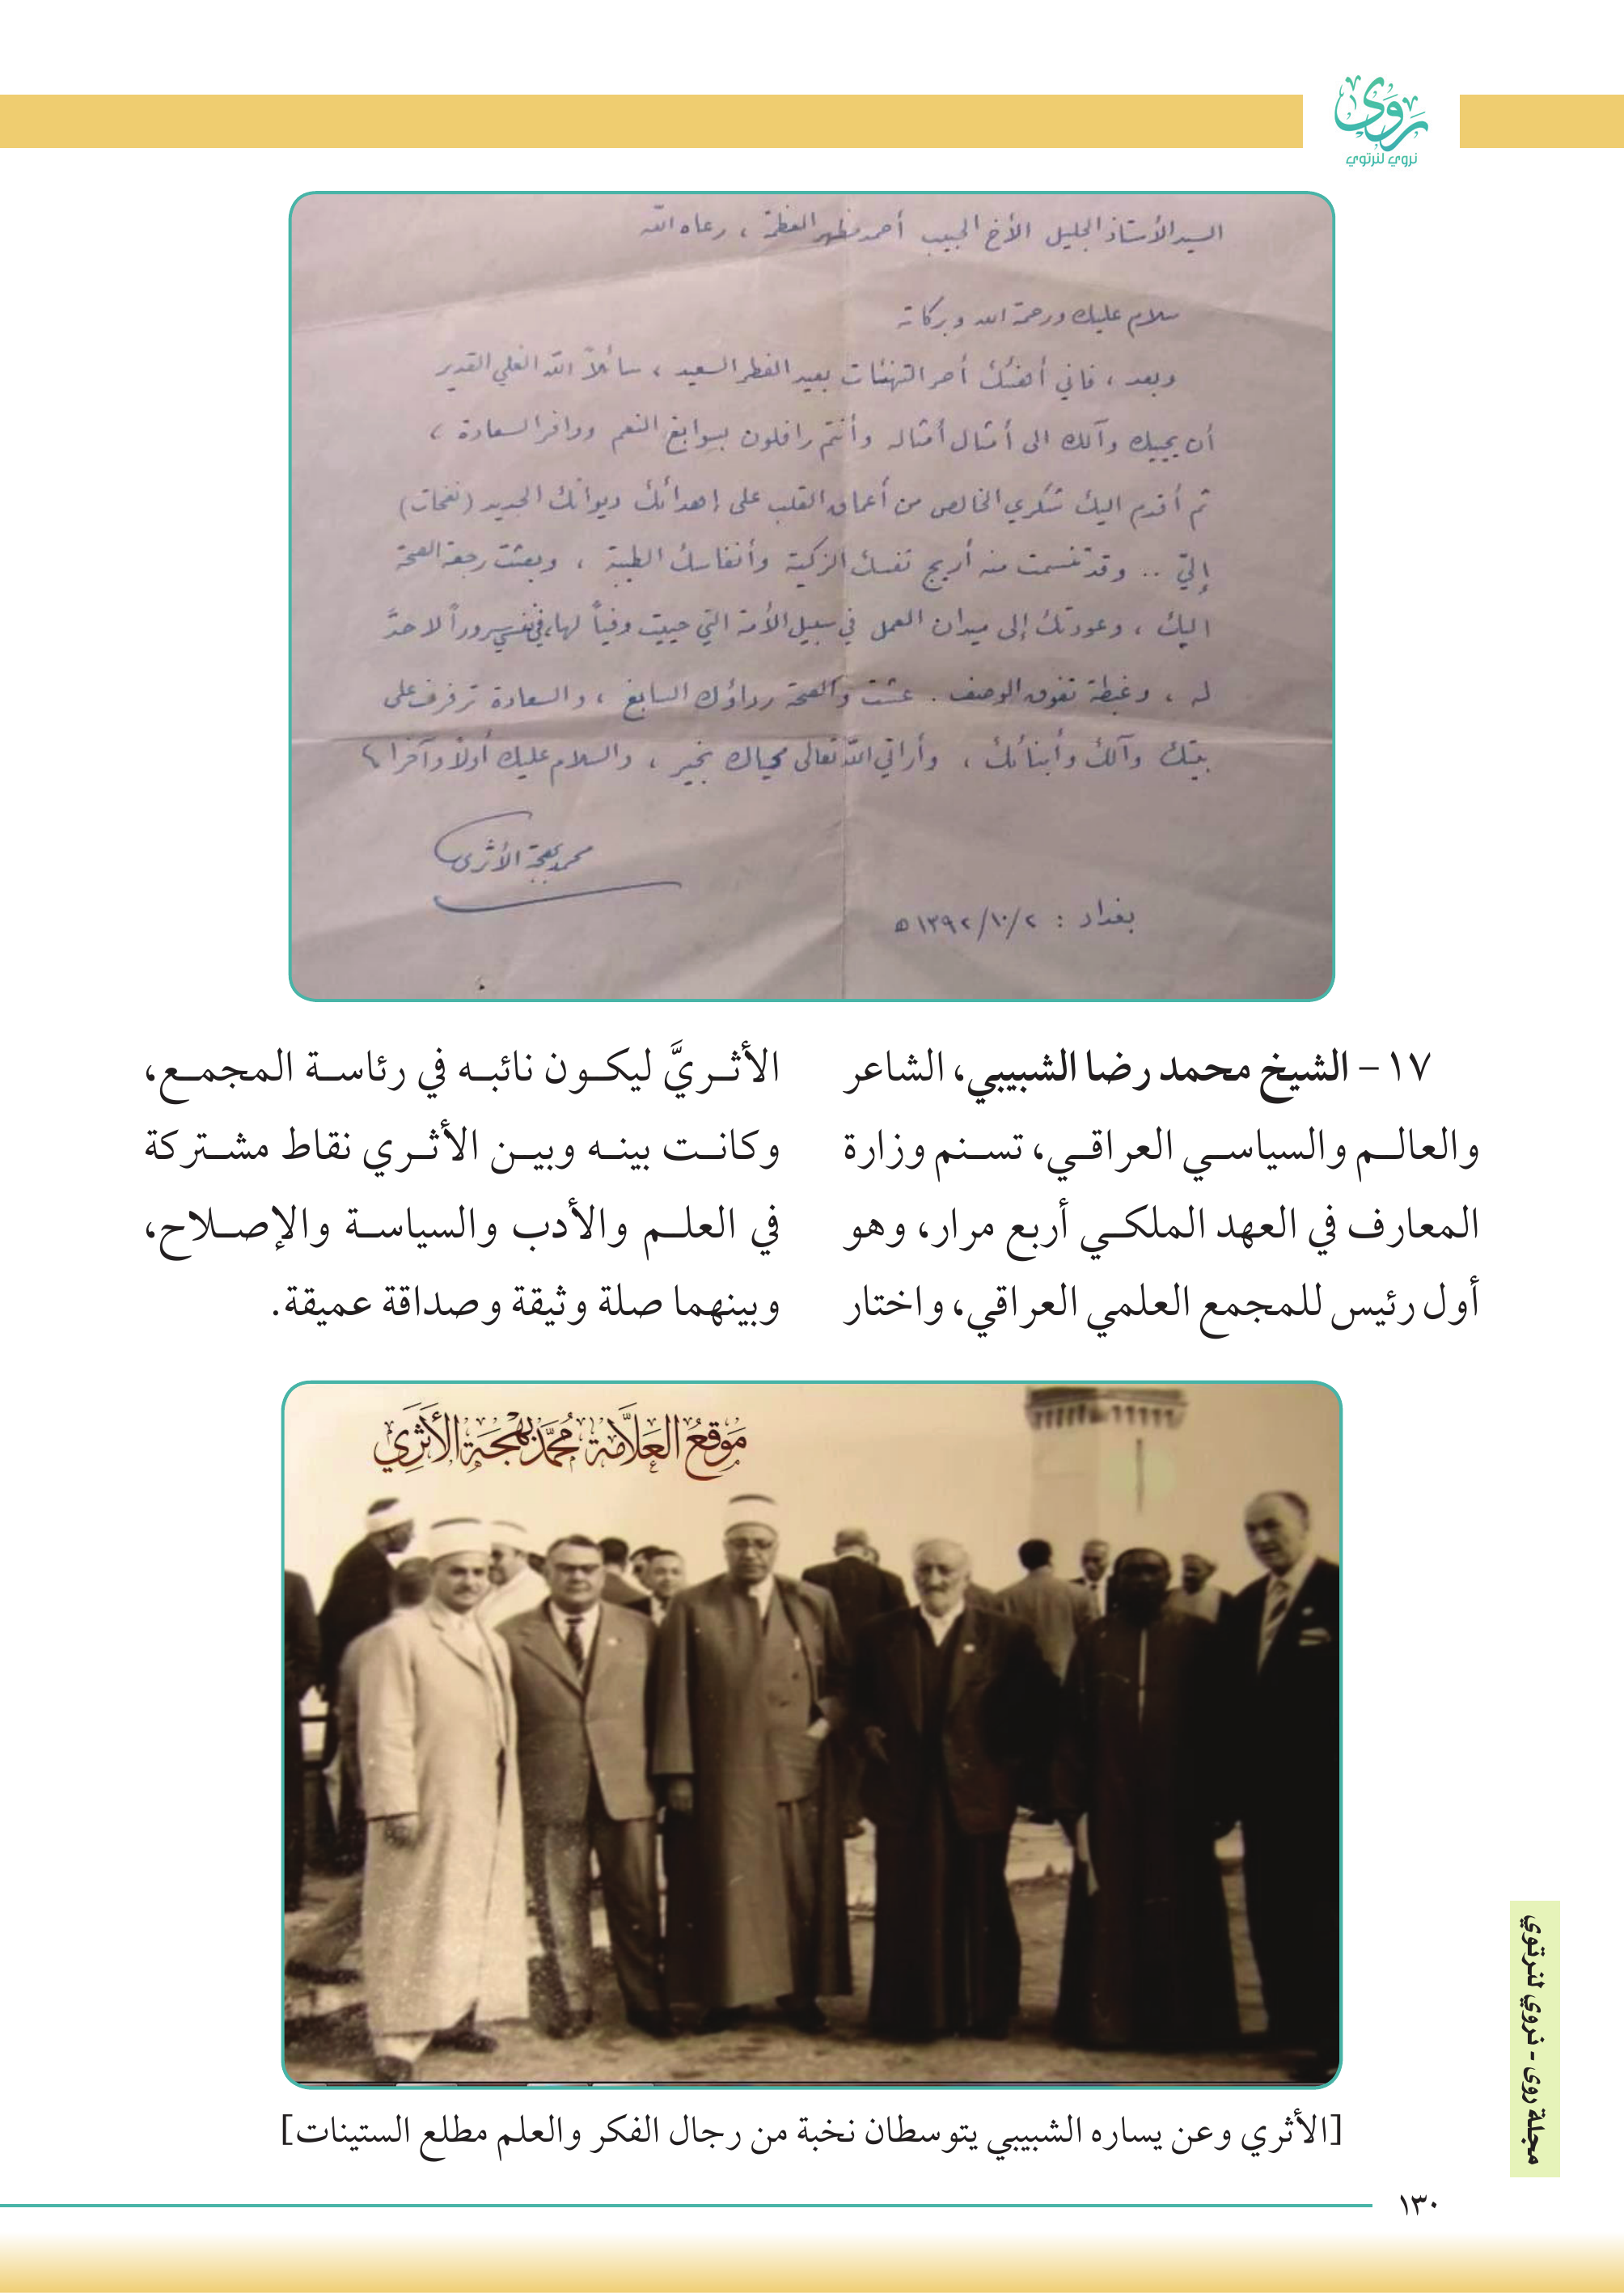 روى
نروي لنرتوي
السيد الأستاذ الجليل الأخ الحبيب أحمد مظهر العظمة ، رعاه الله
سلام عليك ورحمة الله وبركاته
وبعد ، فاني أهنئك أحر التهنئات بعيد الفطر السعيد ، سائلاً الله العلي القدير
أن يحييك وآلك الى أمثال أمثاله وأنتم رافلون بسوابغ النعم ووافر السعادة ،
ثم أقدم اليك شكري الخالص من أعماق القلب على إهدائك ديوانك الجديد (نفحات)
إليّ .. وقد تنسمت منه أريج نفسك الزكية وأنفاسك الطيبة ، وبعثت رجعة الصحة
اليك ، وعودتك إلى ميدان العمل في سبيل الأمة التي حييت وفياً لها، في نفسي سروراً لا حدّ
له ، وغبطة تفوق الوصف . عشت والصحة رداؤك السابغ ، والسعادة ترفرف على
بيتك وآلك وأبنائك ، وأراني الله تعالى محياك بخير ، والسلام عليك أولاً وآخرا
محمد بهجة الأثري
بغداد : ١٣٩٢/١٠/٢ ه
١٧ – الشيخ محمد رضا الشبيبي، الشاعر
والعالم والسياسي العراقي، تسنم وزارة
المعارف في العهد الملكي أربع مرار، وهو
أول رئيس للمجمع العلمي العراقي، واختار
الأثريَّ ليكون نائبه في رئاسة المجمع،
وكانت بينه وبين الأثري نقاط مشتركة
في العلم والأدب والسياسة والإصلاح،
وبينهما صلة وثيقة وصداقة عميقة.
مَوقعُ العَلاَّمَة مُحمَّد بَهْجَة الأَثَرِي
[الأثري وعن يساره الشبيبي يتوسطان نخبة من رجال الفكر والعلم مطلع الستينات]
مجلة روى - نروي لنرتوي
١٣٠